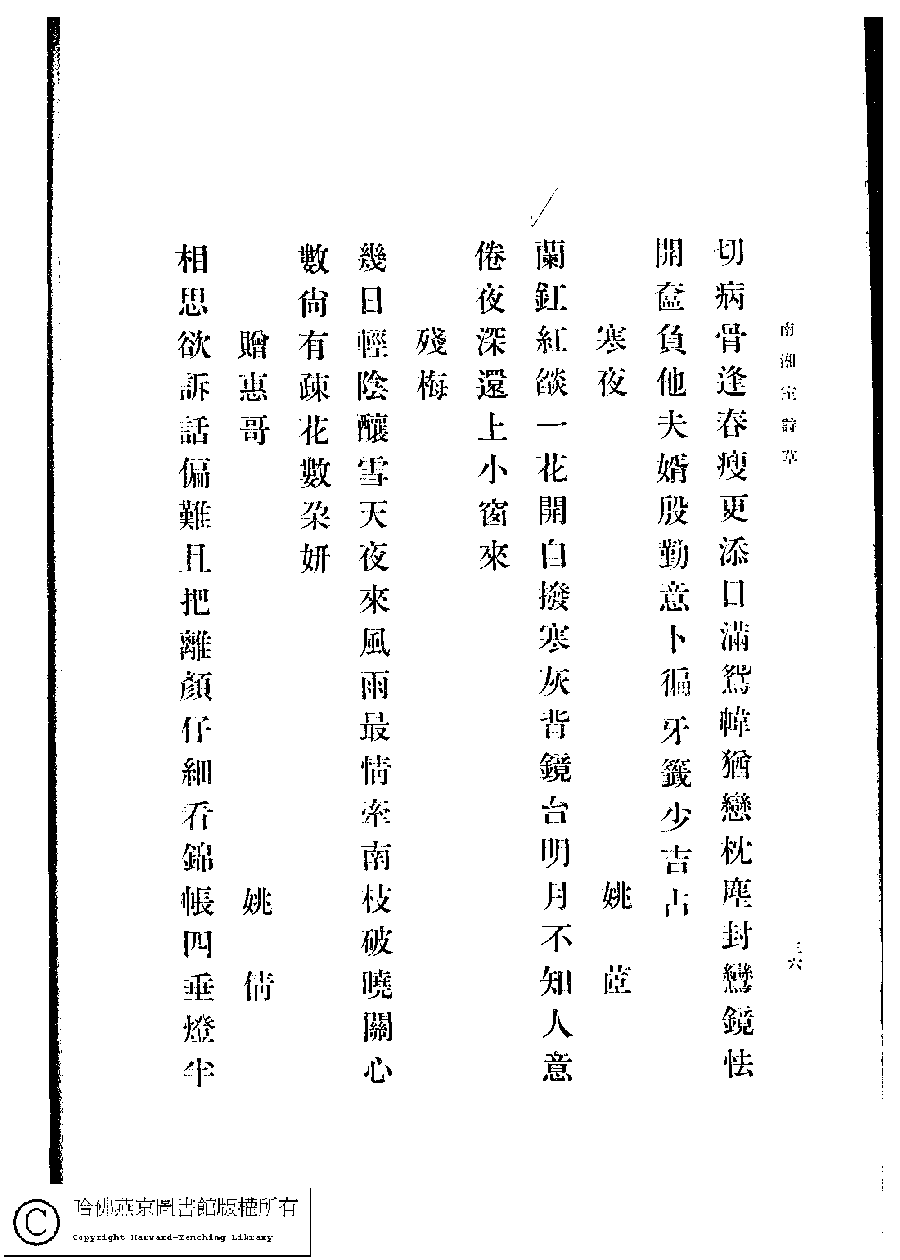 南湖室詩草
三六
切病骨逢春瘦更添口滿鴛幃猶戀枕塵封鸞鏡怯
開奩負他夫婿殷勤意卜徧牙籤少吉占
寒夜 姚茝
蘭釭紅燄一花開自撥寒灰背鏡台明月不知人意
倦夜深還上小窗來
殘梅
幾日輕陰釀雪天夜來風雨最情牽南枝破曉關心
數尙有疎花數朶妍
贈惠哥 姚倩
相思欲訴話偏難且把離顏仔細看錦帳四垂燈半
哈佛燕京圖書館版權所有
Copyright Harvard-Yenching Library